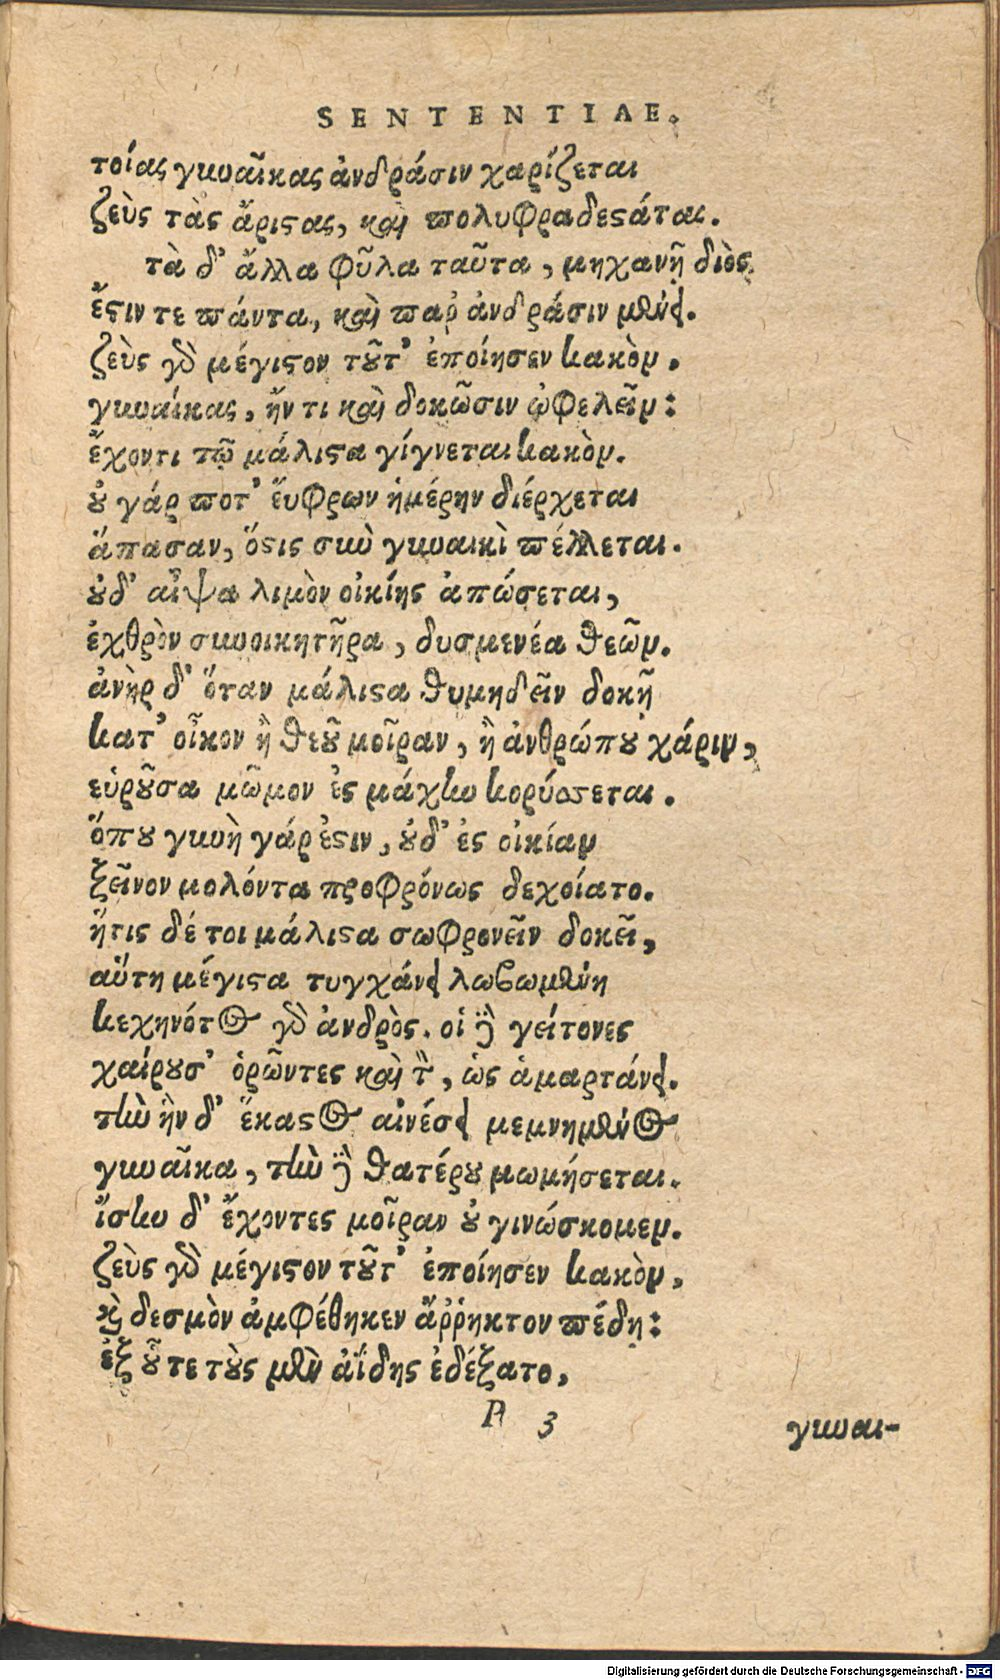 SENTENTIAE.
τοίας γυναῖκας ἀνδράσιν χαρίζεται
ζεὺς τὰς ἄριϛας, καὶ πολυφραδεϛάτας.
τὰ δ’ ἄλλα φῦλα ταῦτα, μηχανῆ διὸς
ἔϛιν τε πάντα, καὶ παρ’ ἀνδράσιν μένει.
ζεὺς γὰρ μέγιϛον τοῦτ’ ἐποίησεν κακὸν,
γυναίκας, ἤν τι καὶ δοκῶσιν ὠφελεῖν:
ἔχοντι τῷ μάλιϛα γίγνεται κακὸν.
οὐ γάρ ποτ’ ἔυφρων ἡμέρην διέρχεται
ἅπασαν, ὅϛις σὺν γυναικὶ πέλλεται.
οὐδ’ αἶψα λιμὸν οἰκίης ἀπώσεται,
ἐχθρὸν συνοικητῆρα, δυσμενέα θεῶν.
ἀνὴρ δ’ ὅταν μάλιϛα θυμηδεῖν δοκῆ
κατ’ οἶκον ἢ θεοῦ μοῖραν, ἢ ἀνθρώπου χάριν,
εὑροῦσα μῶμον ἐς μάχην κορύσσεται.
ὅπου γυνὴ γάρ ἐϛιν, οὐδ’ ἐς οἰκίαν
ξεῖνον μολόντα προφρόνως δεχοίατο.
ἥτις δέ τοι μάλιϛα σωφρονεῖν δοκεῖ,
αὕτη μέγιϛα τυγχάνει λωβωμένη
κεχηνότος γὰρ ἀνδρὸς. οἱ δὲ γείτονες
χαίρουσ’ ὁρῶντες καὶ τὸν, ὡς ἁμαρτάνει.
τὴν ἣν δ’ ἕκαϛος αἰνέσει μεμνημένος
γυναῖκα, τὴν δὲ θατέρου μωμήσεται.
ἴσην δ’ ἔχοντες μοῖραν οὐ γινώσκομεν.
ζεὺς γὰρ μέγιϛον τοῦτ’ ἐποίησεν κακὸν,
καὶ δεσμὸν ἀμφέθηκεν ἄῤῥηκτον πέδη:
ἐξ οὗ τε τοὺς μὲν ἀΐδης ἐδέξατο,
P 3
γυναι-
Digitalisierung gefördert durch die Deutsche Forschungsgemeinschaft - DFG